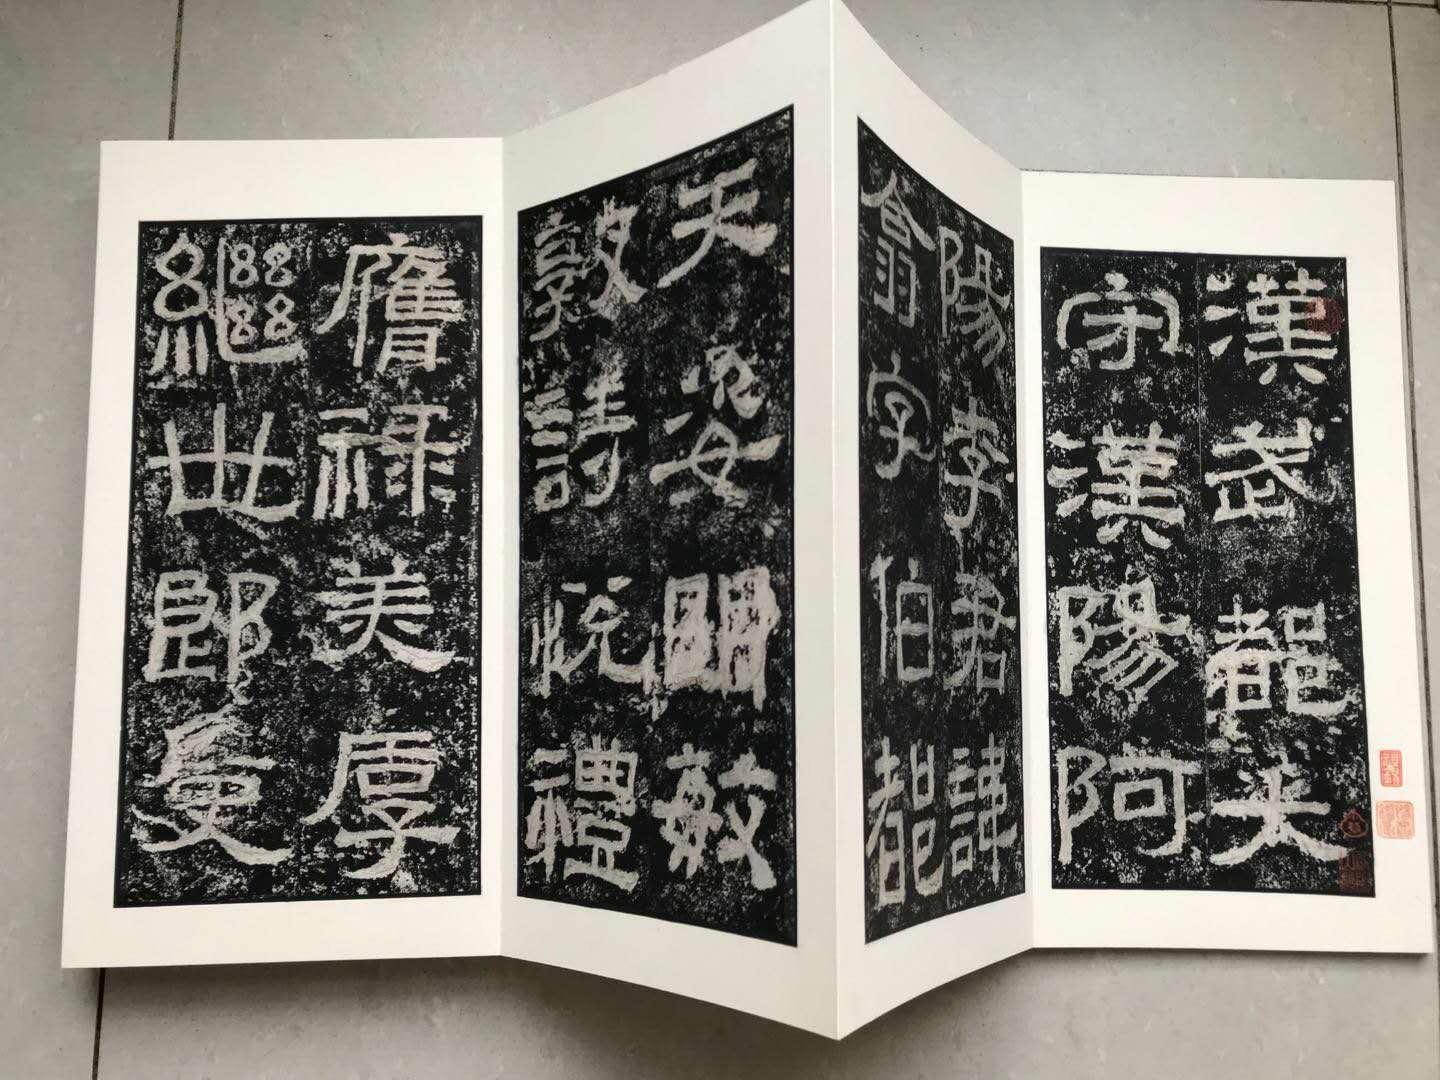 漢武都太
守漢陽阿
陽李君諱
翕字伯都
天姿明敏
敦詩悅禮
膺祿美厚
繼世郎吏